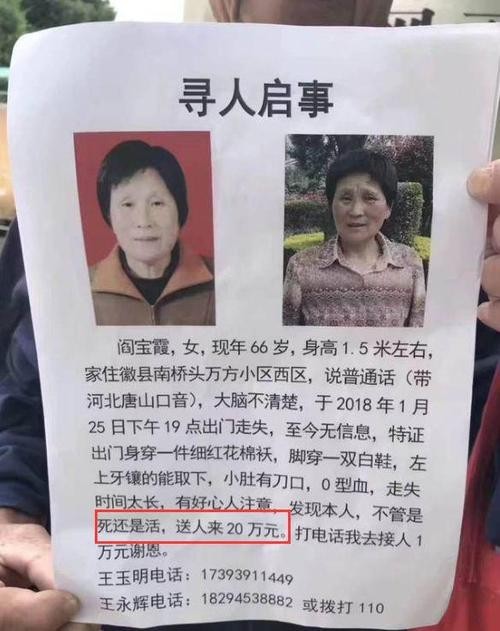 寻人启事
阎宝霞，女，现年66岁，身高1.5米左右，
家住徽县南桥头万方小区西区，说普通话（带
河北唐山口音），大脑不清楚，于2018年1月
25日下午19点出门走失，至今无信息，特证
出门身穿一件细红花棉袄，脚穿一双白鞋，左
上牙镶的能取下，小肚有刀口，0型血，走失
时间太长，有好心人注意，发现本人，不管是
死还是活，送人来20万元。打电话我去接人1
万元谢恩。
王玉明电话：17393911449
王永辉电话：18294538882 或拨打110